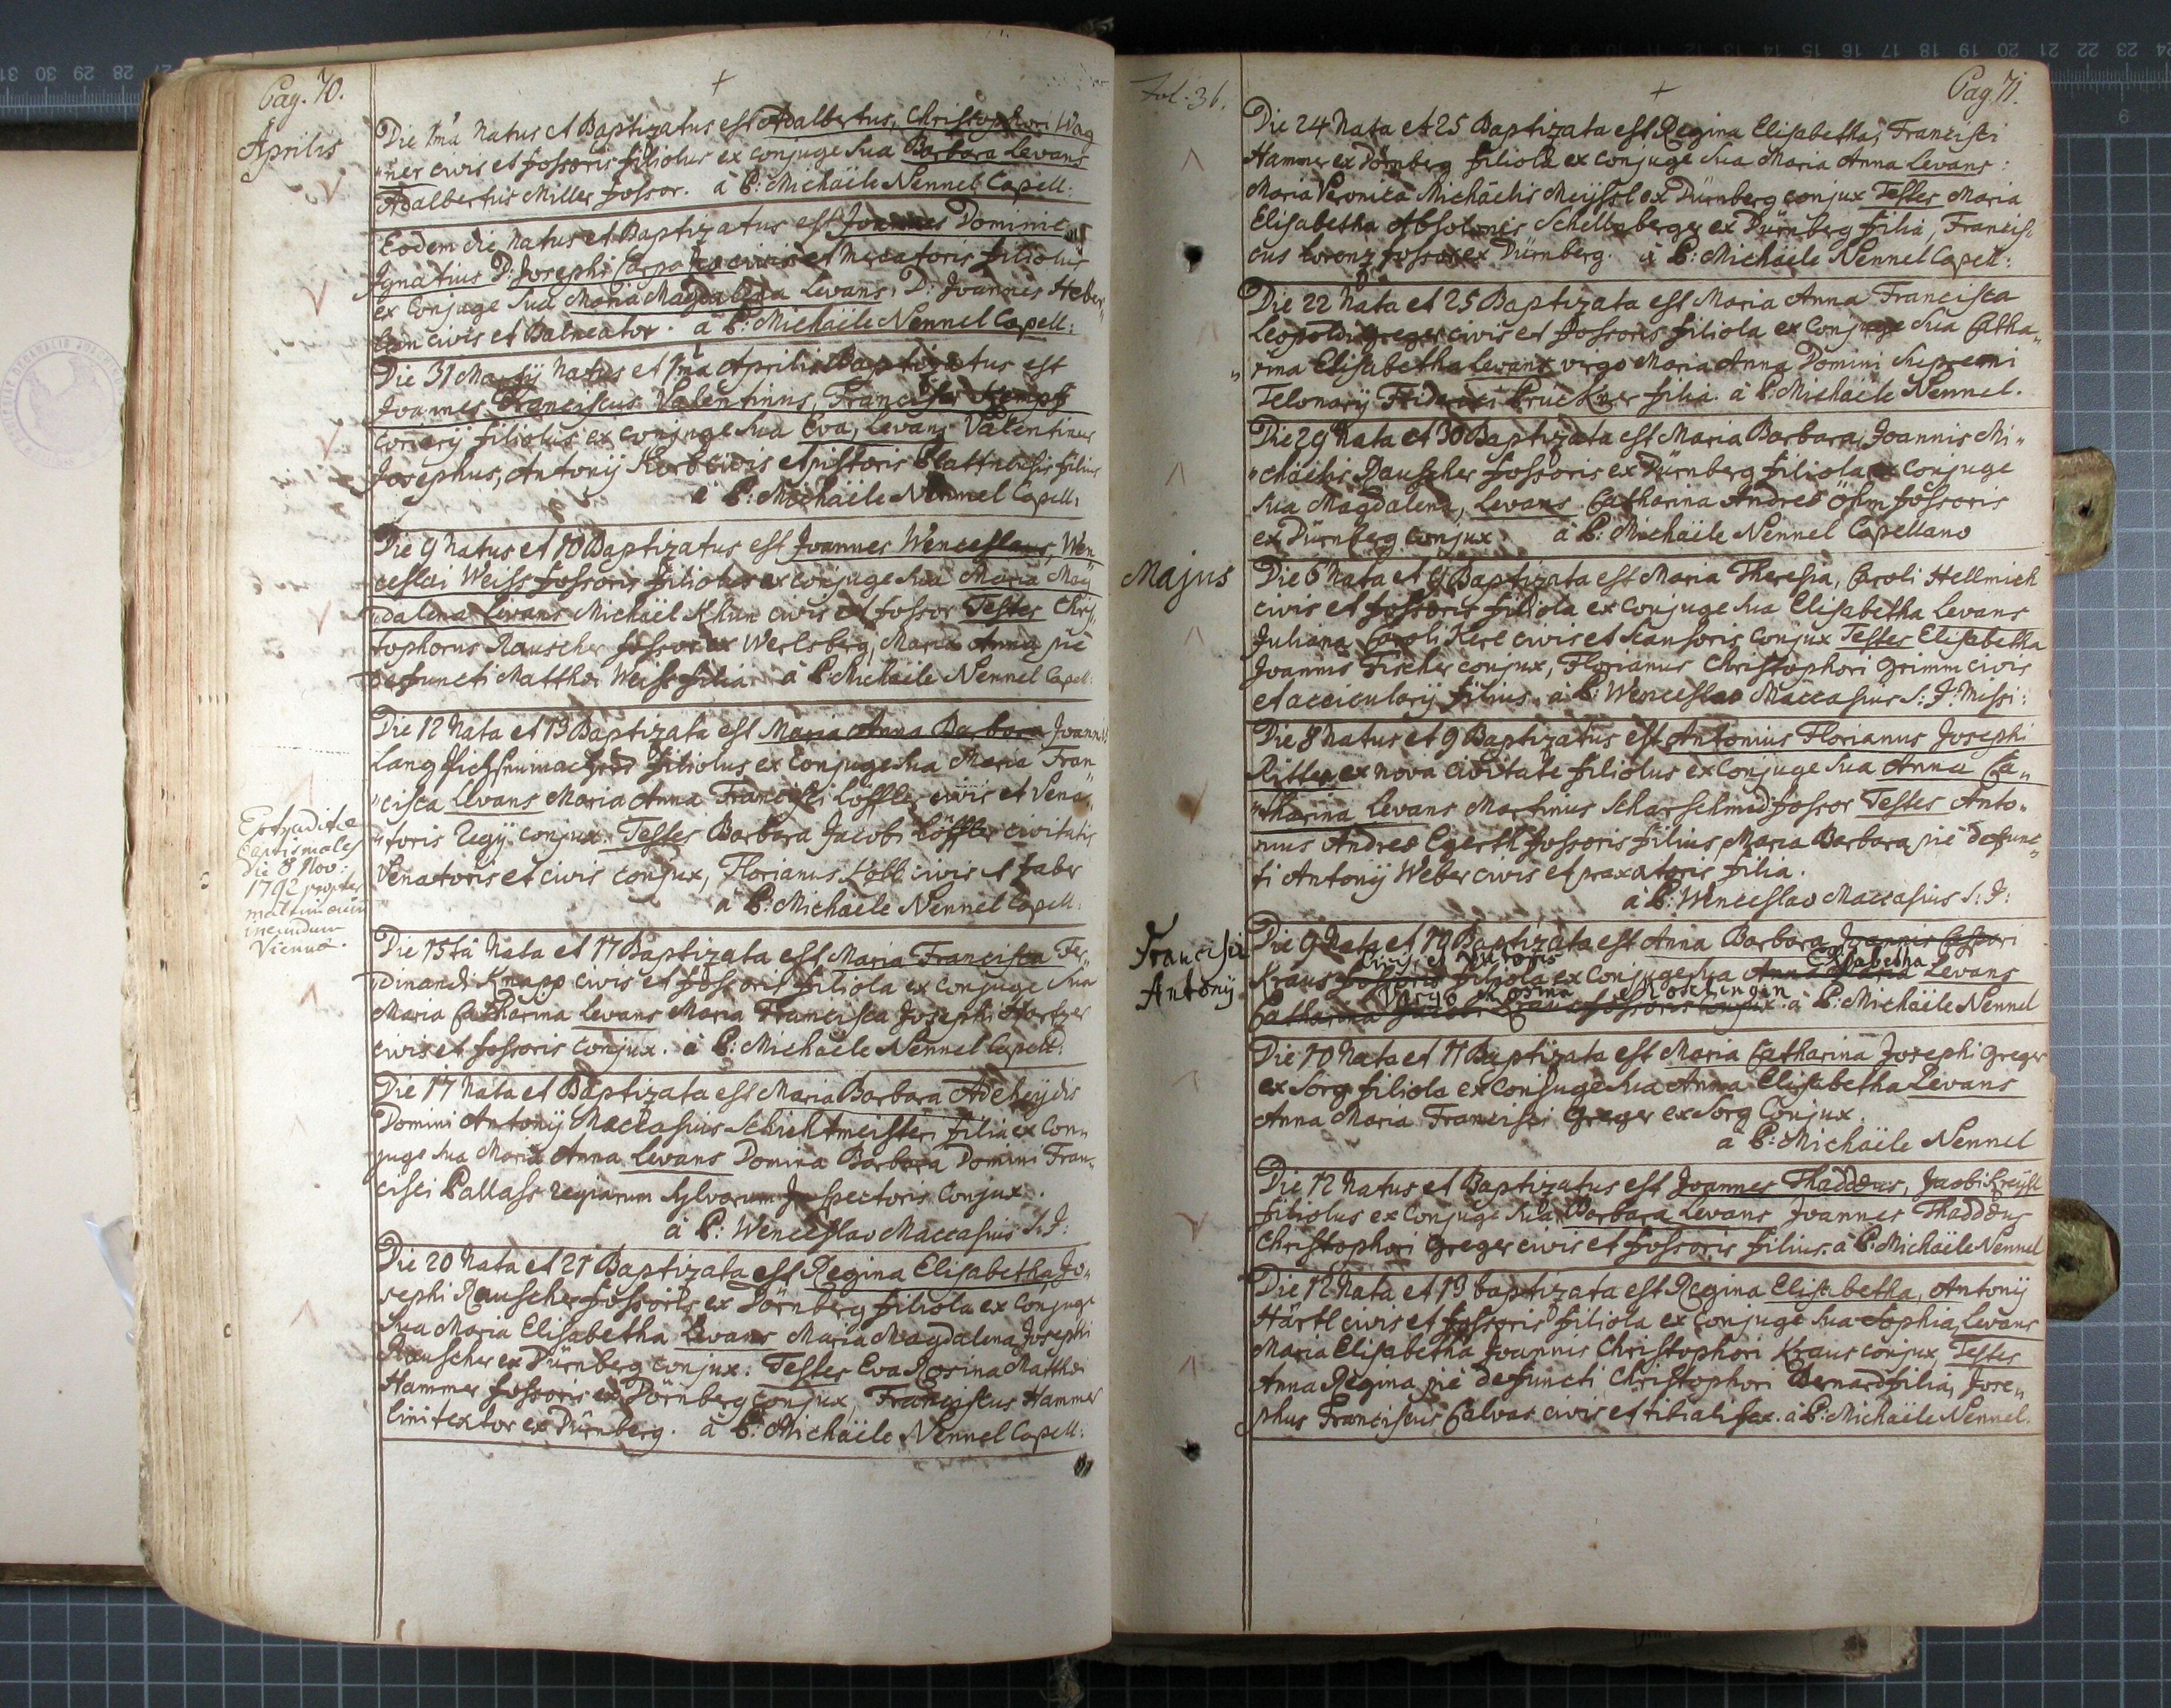 Pag. 70.
Aprilis
Die 1ma Natus et Baptizatus est Adalbertus, Christophori Wag
"ner civis et fossoris filiolus ex conjuge sua Barbara Levans
Adalbertus Miller fossor. à P: Michaële Nennel Capell:
Eodem die Natus et Baptizatus est Joannes Dominicus
Ignatius D: Josephi civis et Mercatoris filiolus
ex Conjuge sua Maria Magdalena Levans, D: Joannes Heber
civis et Balneator. à P: Michaële Nennel Capell:
Die 31 Martij Natus et 1ma Aprilis Baptizatus est
Joannes Franciscus Valentinus, Francisci Kempf
coriarij filiolus ex conjuge sua Eva, Levans Valentinus
Josephus, Antonij Korb civis et pistoris Plattnensis filius
à P: Michaële Nennel Capell:
Die 9 Natus et 10 Baptizatus est Joannes Wenceslaus, Wen
ceslai Weiss fossoris filiolus ex conjuge sua Maria Mag
"dalena Levans Michaël Khun civis et fossor Testes Chris
tophorus Rauscher fossor ex Werlsberg, Maria Anna pie
defuncti Matthæi Weiss filia. à P: Michaële Nennel Capell:
Die 12 Nata et 13 Baptizata est Maria Anna Barbara Joannis
Lang filiolus ex Conjuge sua Maria Fran
"cisca Levans Maria Anna Francisci Löffler civis et Vena"
"toris Regij conjux. Testes Barbara Jacobi Löffler civitatis
Venatoris et civis conjux, Florianus Kolb civis et faber
à P: Michaële Nennel Capell:
Extraditæ
baptismales
die 8 Nov:
1792 propter
matrimonium
ineundum
Viennæ.
Die 15tâ Nata et 17 Baptizata est Maria Francisca Fer"
"dinandi Knapp civis et fossoris filiola ex conjuge sua
Maria Catharina Levans Maria Francisca Josephi
civis et fossoris conjux. à P: Michaële Nennel Capell:
Die 17 Nata et Baptizata est Maria Barbara Adeheÿdis
Domini Antonij Maccasius Schichtmeisteri filia ex Con"
juge sua Maria Anna Levans Domina Barbara Domini Fran"
cisci Pallass regiarum sylvarum Inspectoris Conjux.
à P: Wenceslao Maccasius S.J:
Die 20 Nata et 21 Baptizata est Regina Elisabetha Jo"
sephi Rauscher fossoris ex Dörnberg filiola ex conjuge
sua Maria Elisabetha Levans Maria Magdalena Josephi
Rauscher ex Dürnberg conjux: Testes Eva Rosina Matthæi
Hammer fossoris ex Dörnberg conjux, Franciscus Hammer
linitextor ex Dürnberg. à P: Michaële Nennel Capell:
Fol. 36.
Pag. 71.
Die 24 Nata et 25 Baptizata est Regina Elisabetha, Francisci
Hammer ex Dörnberg filiola ex conjuge sua Maria Anna Levans:
Maria Veronica Michaëlis Meÿssl ex Dürnberg conjux Testes Maria
Elisabetha Absolonis Schellnberger ex Dürnberg filia, Francis"
cus Lorenz fossor ex Dürnberg. à P: Michaële Nennel Capell:
Die 22 Nata et 25 Baptizata est Maria Anna Francisca
Leopoldi Greger civis et fossoris filiola ex conjuge sua Catha"
"rina Elisabetha Levans virgo Maria Anna Domini Supremi
Telonarij Friderici Bruckner filia. à P: Michaële Nennel.
Die 29 Nata et 30 Baptizata est Maria Barbara, Joannis Mi"
"chaëlis Rauscher fossoris ex Dürnberg filiola ex conjuge
sua Magdalena, Levans Catharina Andreæ Öhm fossoris
ex Dürnberg conjux. à P: Michaële Nennel Capellano
Majus
Die 6 Nata et 9 Baptizata est Maria Theresia, Caroli Hellmich
civis et fossoris filiola ex conjuge sua Elisabetha Levans
Juliana Caroli Kerl civis et scansoris conjux Testes Elisabetha
Joannis Fischer conjux, Florianus Christophori Grimm civis
et accicularij filius. à P: Wenceslao Maccasius S: J: Missi:
Die 8 Natus et 9 Baptizatus est Antonius Florianus Josephi
Ritter ex nova civitate filiolus ex conjuge sua Anna Ca"
"tharina Levans Martinus Scharschmid fossor Testes Anto"
nius Andreæ Egerth fossoris filius, Maria Barbara pie defunc"
ti Antonij Weber civis et praxatoris filia.
à P: Wenceslao Maccasius S: J:
Francisci
Antonij
Die 9 Nata et 10 Baptizata est Anna Barbara Joannis Caspari
civis et sutoris Elisabetha
Kraus fossoris filiola ex Conjuge sua Anna Maria Levans
Virgo Rosina
Catharina Jacobi fossoris conjux. à P: Michaële Nennel
Die 10 Nata et 11 Baptizata est Maria Catharina Josephi Greger
ex Sorg filiola ex conjuge sua Anna Elisabetha Levans
Anna Maria Francisci Greger ex Sorg Conjux.
à P: Michaële Nennel
Die 12 Natus et Baptizatus est Joannes Thaddæus, Jacobi
filiolus ex conjuge sua Barbara Levans Joannes Thaddæus
Christophori Greger civis et fossoris filius. à P: Michaële Nennel
Die 12 Nata et 13 baptizata est Regina Elisabetha, Antonij
Härtl civis et fossoris filiola ex Conjuge sua Sophia, Levans
Maria Elisabetha Joannis Christophori Kraus conjux, Testes
Anna Regina pie defuncti Christophori Bernard filia, Jose"
phus Franciscus Calvas civis et tibialifex. à P: Michaële Nennel.